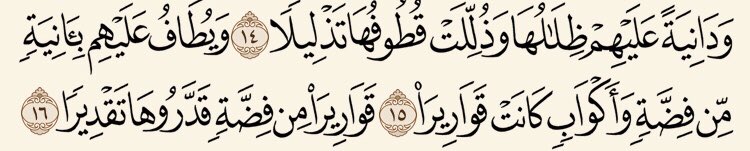 وَدَانِيَةً عَلَيْهِمْ ظِلَـٰلُهَا وَذُلِّلَتْ قُطُوفُهَا تَذْلِيلًا ١٤ وَيُطَافُ عَلَيْهِم بِـَٔانِيَةٍ
مِّن فِضَّةٍ وَأَكْوَابٍ كَانَتْ قَوَارِيرَا۠ ١٥ قَوَارِيرَا۟ مِن فِضَّةٍ قَدَّرُوهَا تَقْدِيرًا ١٦